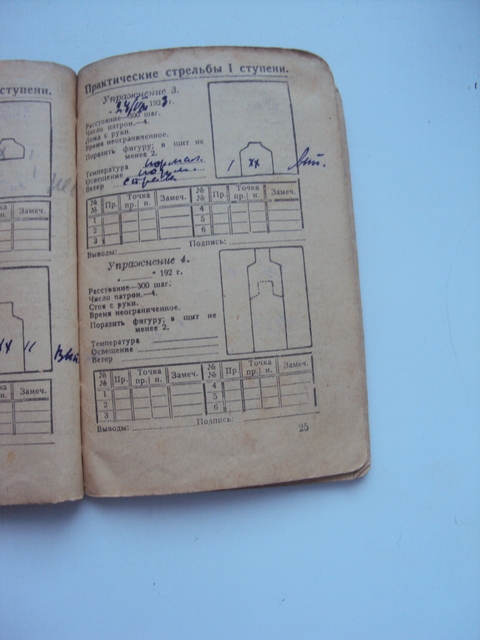 ступени.
Замеч.
Замеч.
Практические стрельбы I ступени.
Упражнение 3.
192 г.
Расстояние—300 шаг.
Число патрон.—4.
Лежа с руки.
Время неограниченное.
Поразить фигуру; в щит не
менее 2.
Температура
Освещение
Ветер
№№ Пр. Точка пр. и. Замеч. №№ Пр. Точка пр. и. Замеч.
1 4
2 5
3 6
Выводы: Подпись:
Упражнение 4.
192 г.
Расстояние—300 шаг.
Число патрон.—4.
Стоя с руки.
Время неограниченное.
Поразить фигуру; в щит не
менее 2.
Температура
Освещение
Ветер
№№ Пр. Точка пр. и. Замеч. №№ Пр. Точка пр. и. Замеч.
1 4
2 5
3 6
Выводы: Подпись:
25